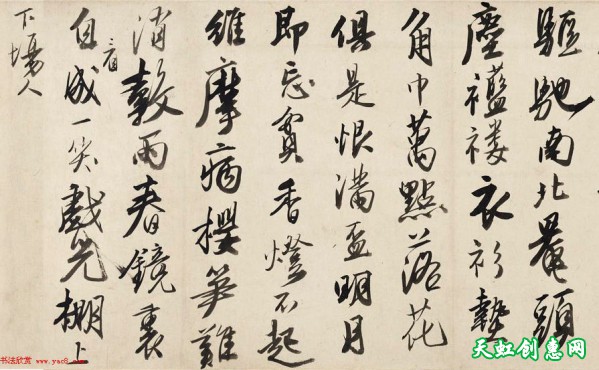 驅馳南北罨頭
塵襤褸衣衫墊
角巾萬點落花
俱是恨滿盃明月
即忘貧香燈不起
維摩病櫻筍難
消穀雨春鏡裏
自看成一笑戲兒棚上
下場人
书法欣赏 www.yac8.com
天虹创惠网